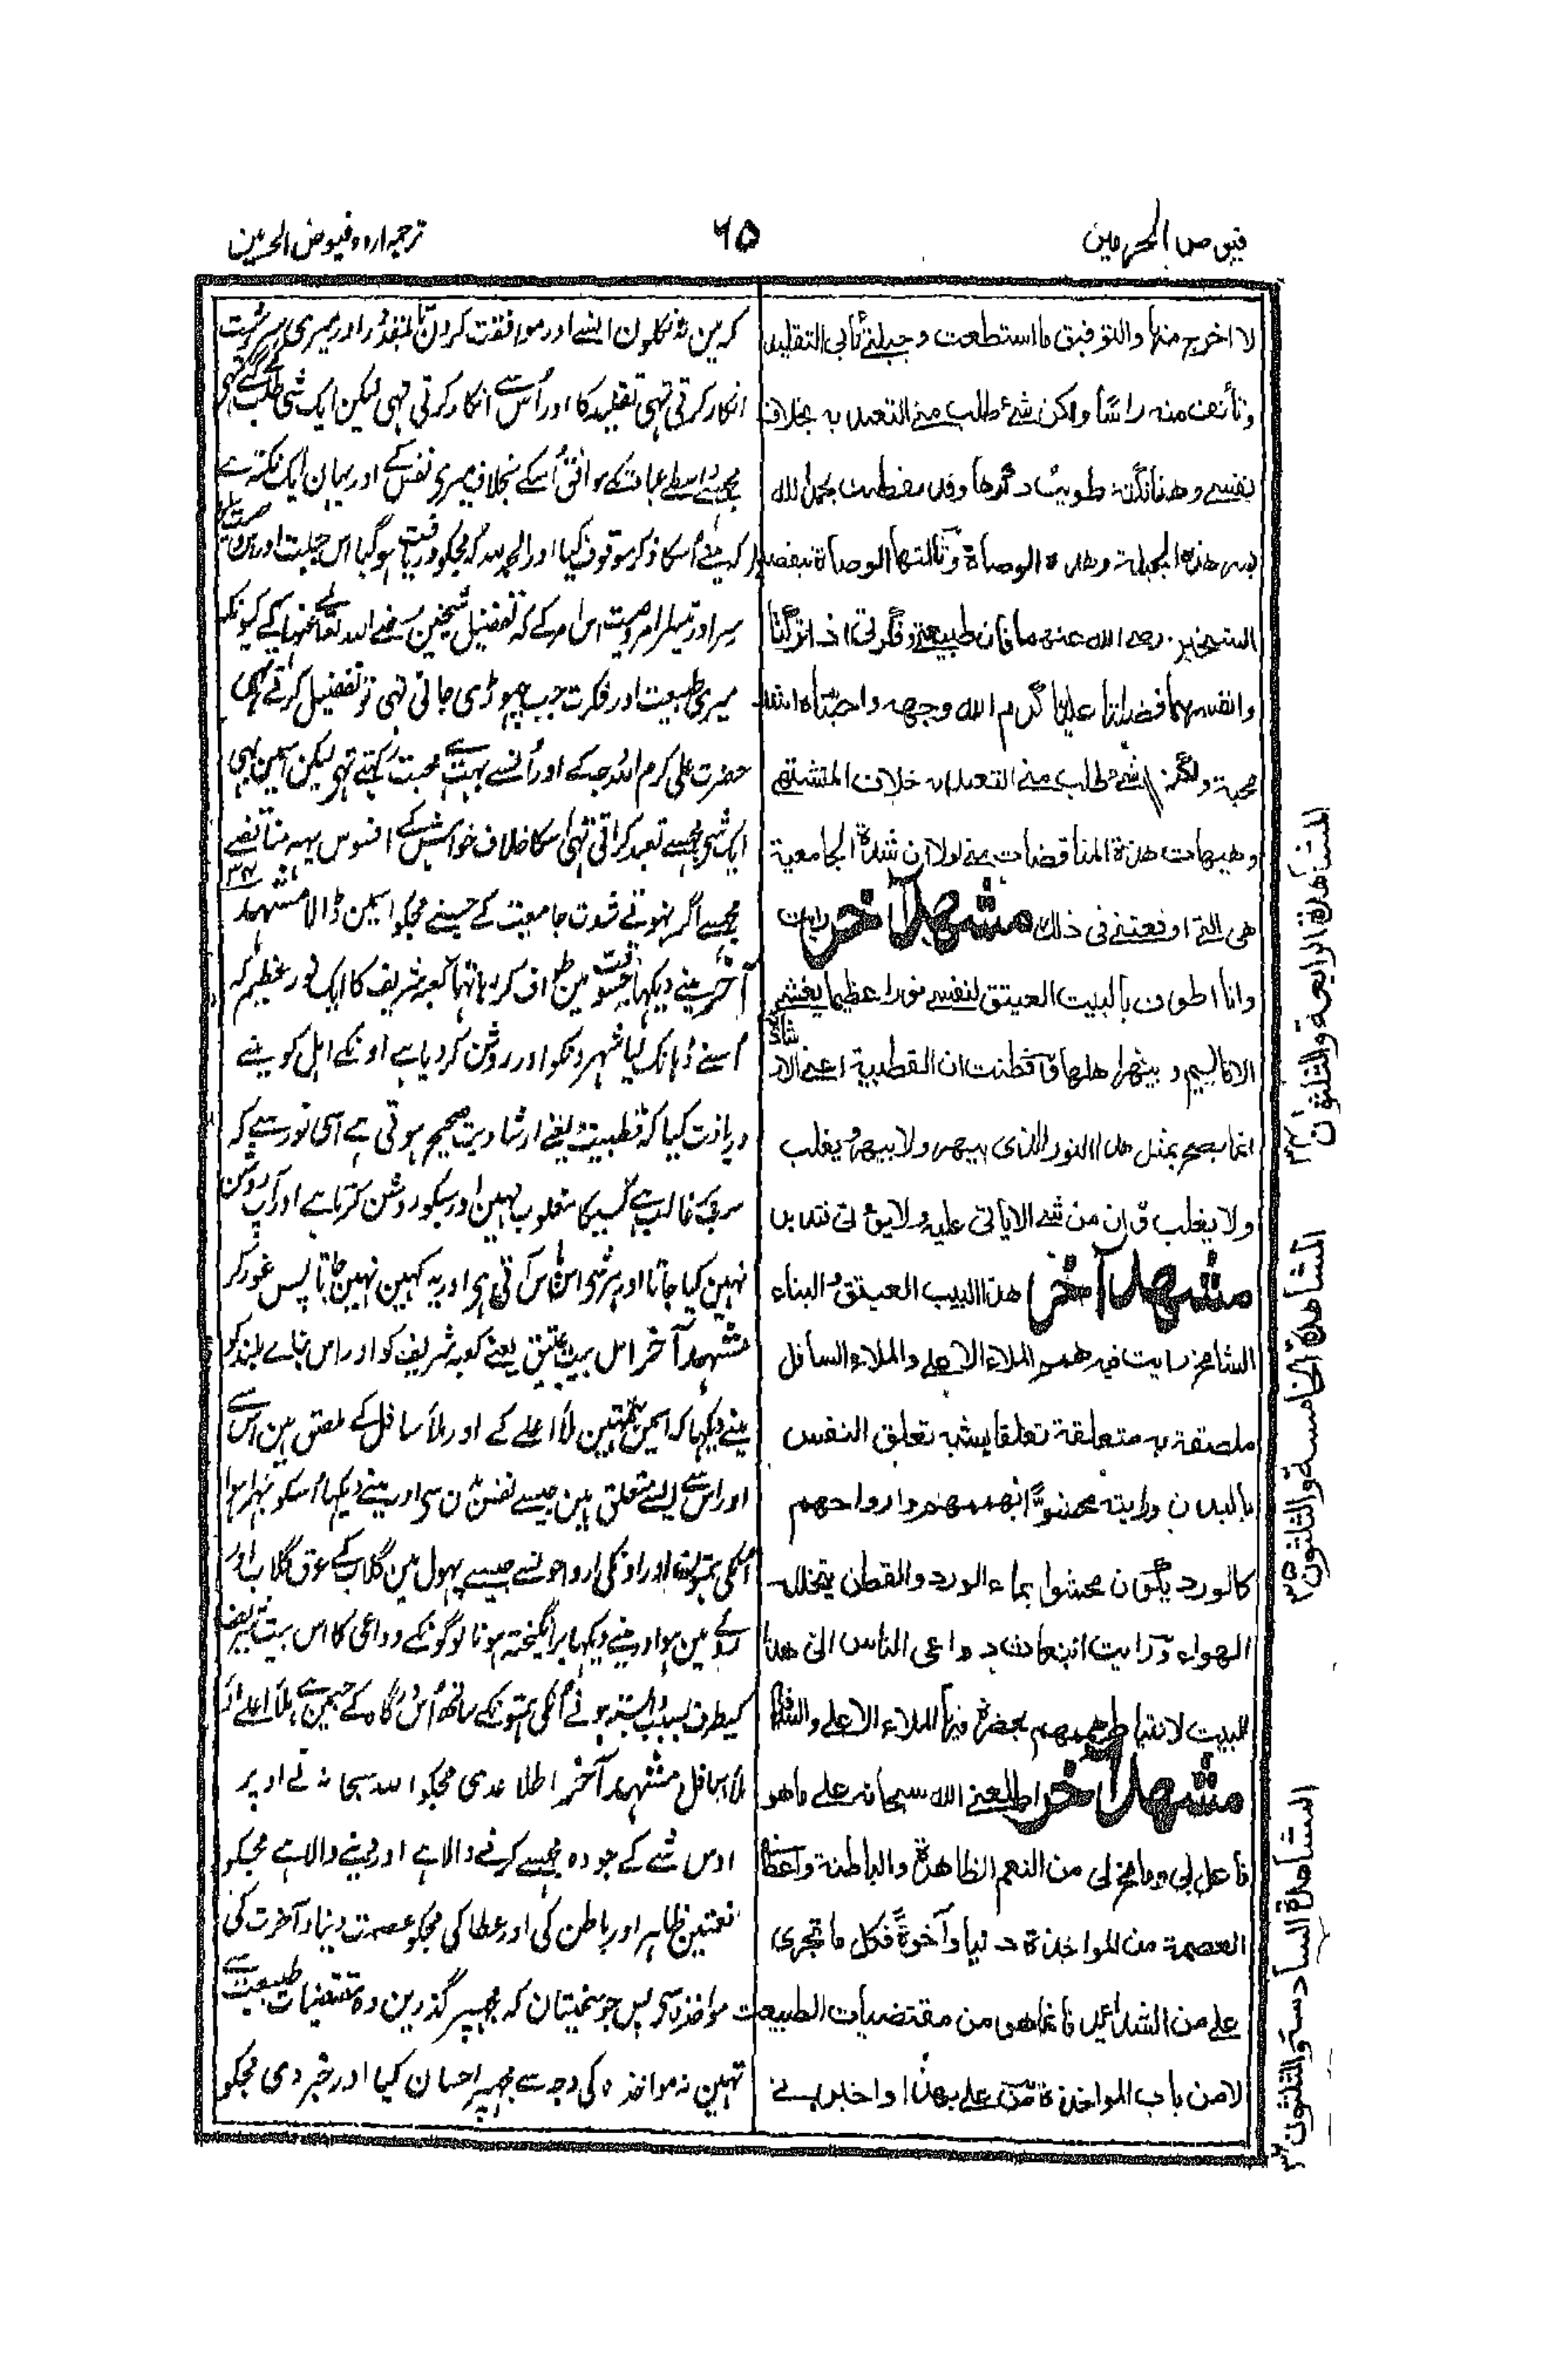 فیوض الحرمین
٦٥
ترجمہ اردو فیوض الحرمین
لا اخرج منها والتوفیق ما استطعت وجبلتی تابی التقلید
وتأنف منه راسًا ولکن شیٔ طلب منی التعبد به بخلاف
نفسی وههنا نکتة طویت ذکرها وقد مفطنت بحمد الله
بسر هذه الجبلة وهذه الوصاة وثالثها الوصاة بتفضیل
الشیخین رضی الله عنهما فان طبیعتی وفکرتی اذا ترکتا
وانفسهما فضلتا علیا کرم الله وجهه واحبتاه اشد
محبة ولکن شیٔ طلب منی التعبد به خلاف المشتهی
وهیهات هذه المناقضات منی لولا ان شدة الجامعیة
هی التی اوقعتنی فی ذلك مشهد آخر رایت
وانا اطوف بالبیت العتیق لنفسی نورا عظیما یغشی
الاقالیم و یبهر اهلها ففطنت ان القطبیة اعنی الارشادیة
انما یصح بمثل هذا النور الذی یبهر ولا یبهر ویغلب
ولا یغلب فان من شیٔ الا یاتی علیه ولا یؤتی فتدبر
مشهد آخر هذا البیت العتیق والبناء
الشامخ رایت فیه همم الملاء الاعلی والملاء السافل
ملصقة به متعلقة تعلقا یشبه تعلق النفس
بالبدن ورایته محشوًا بهممهم وارواحهم
کالورد یکون محشوا بماء الورد والقطن یتخلله
الهواء ورایت انبعاث دواعی الناس الی هذا
البیت لانتیاط هممهم بحضرة فیها الملاء الاعلی والسافل
مشهد آخر اطلعنی الله سبحانه علی ما هو
فاعل بی ومانح لی من النعم الظاهرة والباطنة واعطانی
العصمة من المواخذة دنیا وآخرةً فکل ما تجری
علی من الشدائد فانما هی من مقتضیات الطبیعة
لا من باب المواخذة فمنّ علی بهذا واخبرنی
کہ مین نہ نکلون انسے اور موافقت کرون تا بمقدور اور میری سرشت
انکار کرتی تہی تقلید کا اور اُس سے انکار کرتی تہی لیکن ایک شی طلب کیگئی تہی
مجہسے واسطے عبادت کے موافق اُسکے بخلاف میری نفس کے اور یہان ایک نکتہ ہے
کہ مینے اُسکا ذکر موقوف کیا اور الحمد للہ کہ مجکو دریافت ہوگیا اس جبلت اور اس وصیت کا
سر اور تیسرا امر وصیت اس امر کے کہ تفضیل شیخین رضے اللہ تعالے عنہما کے کیونکہ
میری طبیعت اور فکرت جب چہوڑی جاتی تہی تو تفضیل کرتے تہی
حضرت علی کرم اللہ وجہہ کے اور اُنسے بہت محبت رکہتے تہی لیکن اسمین بہی
ایک شی مجہسے تعبد کراتی تہی اُسکا خلاف خواہش کے افسوس یہہ مناقضے
مجہسے اگر نہوتے شدت جامعیت کے جسنے مجکو اسمین ڈالا مشہد
۳۴
آخر مینے دیکہا جسوقت مین طواف کر رہا تہا کعبہ شریف کا ایک نور عظیم کہ
اُسنے ڈہانک لیا شہرونکو اور روشن کردیا ہے اونکے اہل کو مینے
دریافت کیا کہ قطبیت یعنے ارشادیت صحیح ہوتی ہے اسی نور سے کہ
سب پر غالب ہے کسیکا مغلوب نہین اور سبکو روشن کرتا ہے اور آپ روشن
نہین کیا جاتا اور ہر شی اس پاس آتی ہی اور یہ کہین نہین جاتا پس غور کر
مشہد آخر اس بیت عتیق یعنے کعبہ شریف کو اور اس بناے بلند کو
مینے دیکہا کہ اسمین ہمتین ملأ اعلے کے اور ملأ سافل کے ملصق ہین اس سے
اور اس سے ایسے متعلق ہین جیسے نفس بدن سی اور مینے دیکہا اُسکو بہرا ہوا
اُنکی ہمتونسے اور اونکی ارواحونسے جیسے پہول مین گلاب کے عرق گلاب اور
روئی مین ہوا اور مینے دیکہا برانگیختہ ہونا لوگونکے دواعی کا اس بیت شریف
کیطرف بسبب وابستہ ہونے اُنکی ہمتونکے ساتہہ اُس درگاہ کے جسمین ہے ملأ اعلے اور
ملأ سافل مشہد آخر اطلاعدی مجکو اللہ سبحانہ نے اوپر
اوس شے کے جو وہ مجہسے کرنے والا ہے اور دینے والا ہے مجکو
نعمتین ظاہر اور باطن کی اور عطا کی مجکو عصمت دنیا و آخرت کی
مواخذہ سی پس جو سختیان کہ مجہپر گذرین وہ مقتضیات طبیعت سے
تہین نہ مواخذہ کی وجہ سے مجہپر احسان کیا اور خبر دی مجکو
المشاهدة الرابعة والثلثون ۳۴
المشاهدة الخامسة والثلثون ۳۵
المشاهدة السادسة والثلثون ۳۶